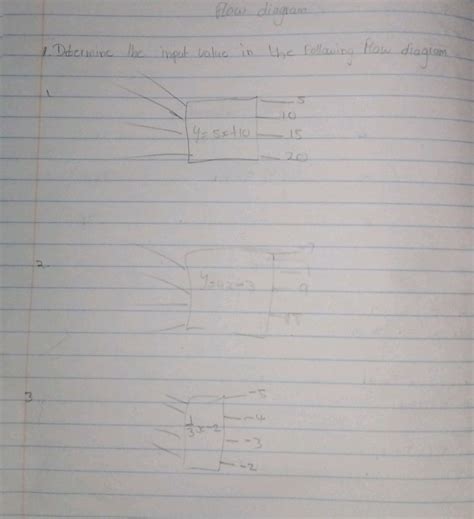 Flow diagram
1. Determine the input value in the following flow diagram
1.
5
10
y=5x+10
15
20
2.
9
3.
-5
-4
1/3x-2
-3
-2